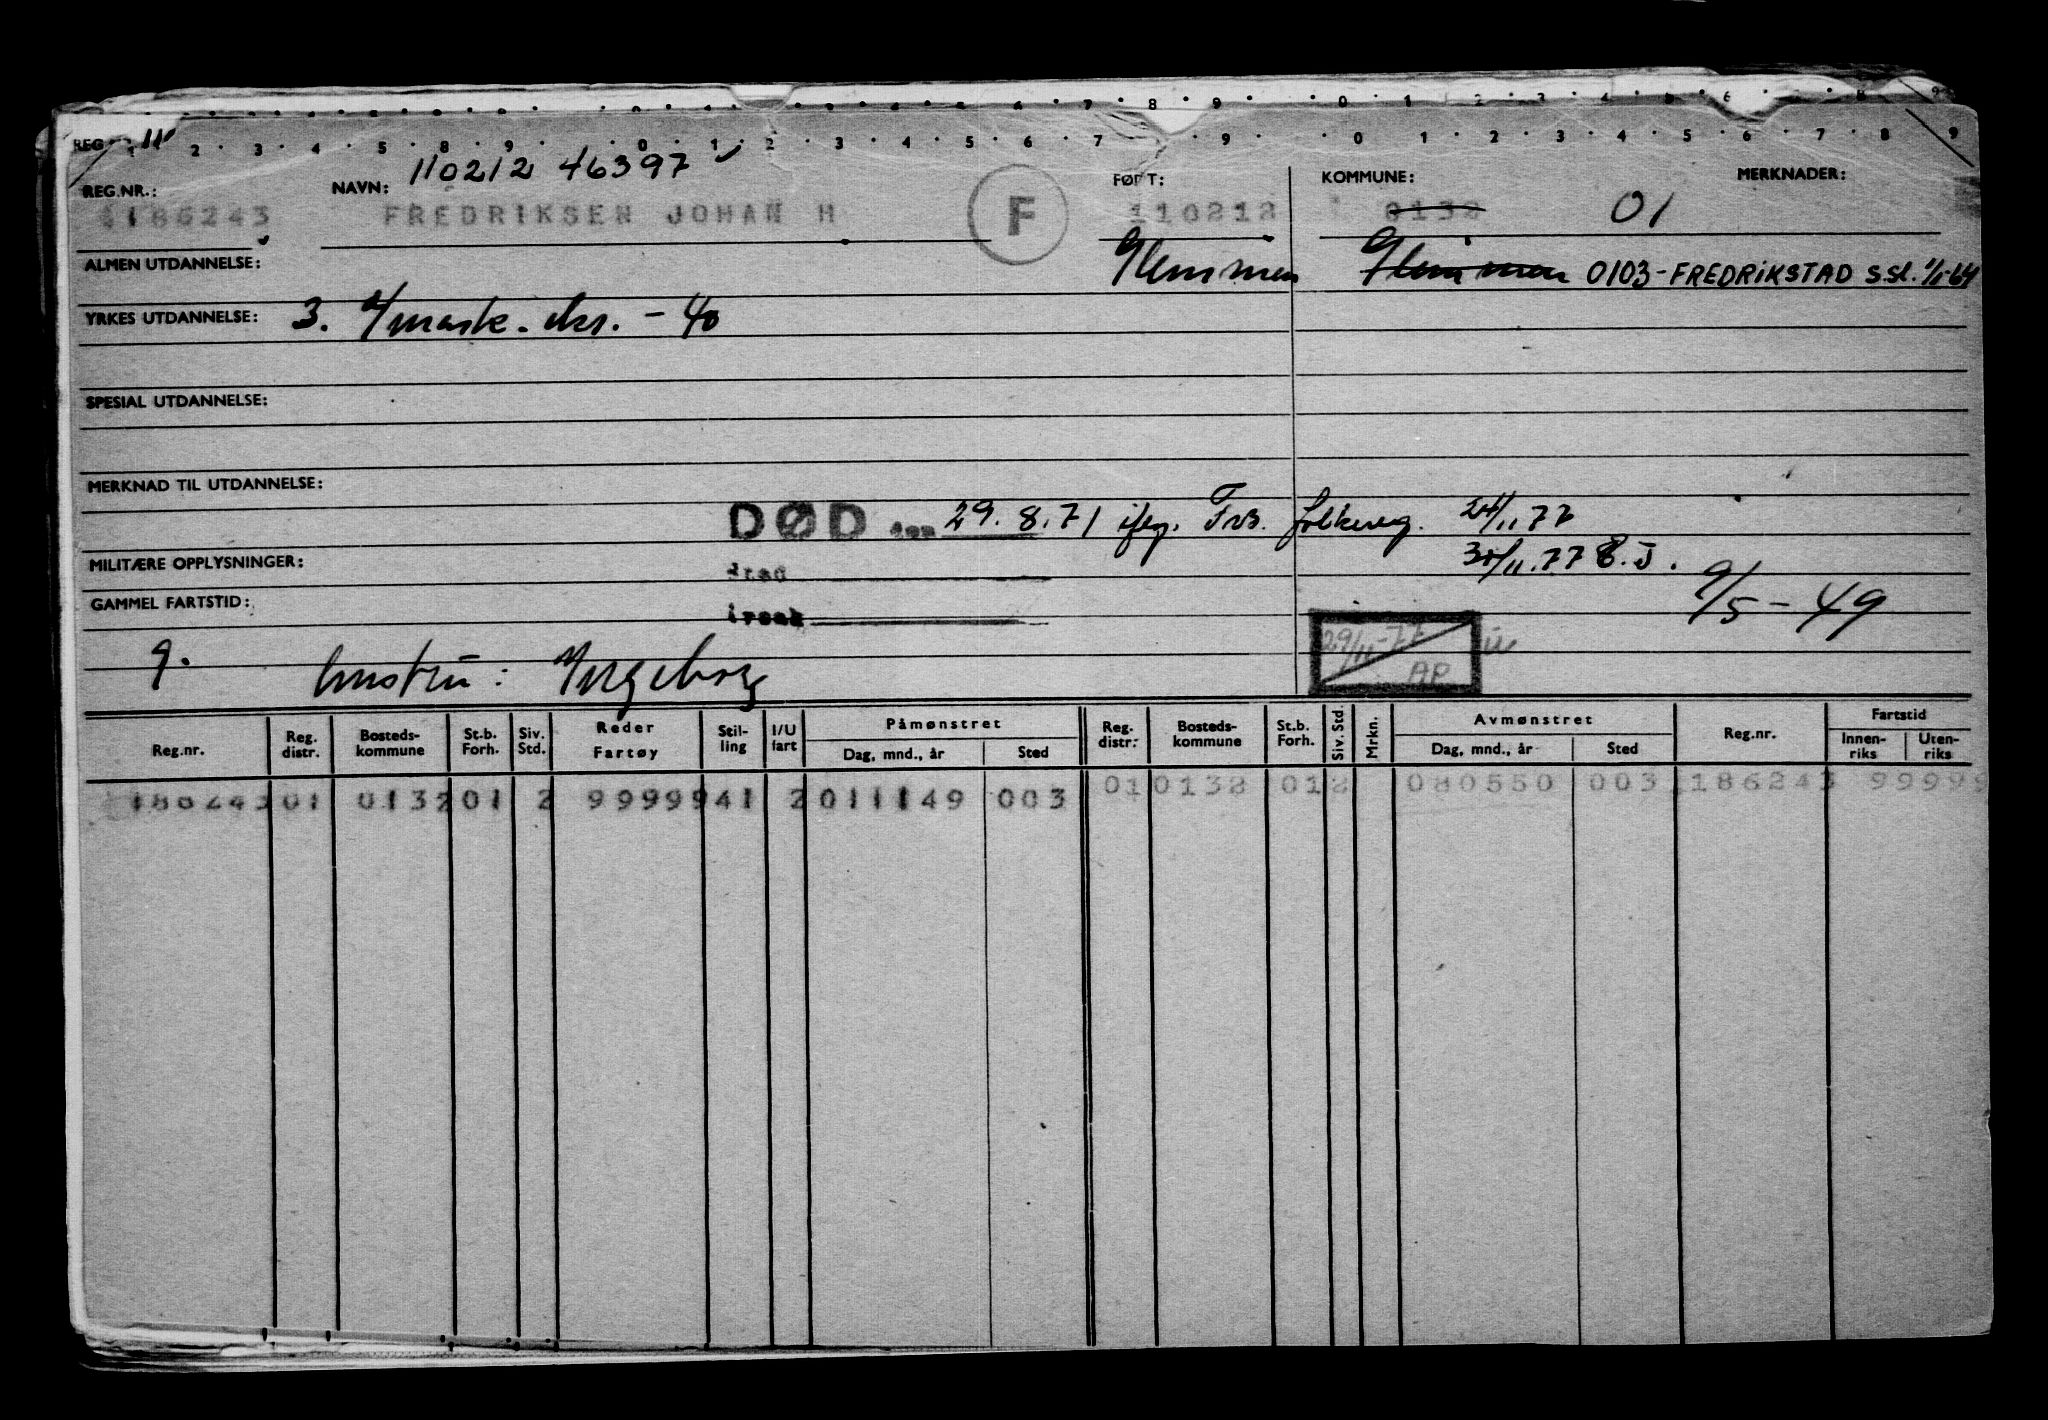 0 · 1 · 2 · 3 · 4 · 5 · 6 · 7 · 8 · 9
REG 11
1 2 · 3 · 4 · 5 · 8 · 9 · 0 · 1 · 2 · 3 · 4 · 5 · 6 · 7 · 9 · 0 · 1 · 2 · 3 · 4 · 5 · 6 · 7 · 8 · 9
110212 46397
REG.NR.: NAVN: FØDT: KOMMUNE: MERKNADER:
1186243 FREDRIKSEN JOHAN H F 110212 0132 01
ALMEN UTDANNELSE: Glemmen Glemmen 0103-FREDRIKSTAD S.sl. 1/1-64
YRKES UTDANNELSE: 3. mask. eks. - 40
SPESIAL UTDANNELSE:
MERKNAD TIL UTDANNELSE:
DØD den 29.8.71 iføg. folkereg. 24/11 77
MILITÆRE OPPLYSNINGER: 30/11.77
GAMMEL FARTSTID: årsak 9/5-49
29/11-77
AP
g. hustru: Ingeborg
Reg.nr. Reg. distr. Bosteds-kommune St.b. Forh. Siv. Std. Reder Fartøy Stil-ling I/U fart Påmønstret Dag, mnd., år Sted Reg. distr. Bosteds-kommune St.b. Forh. Siv. Std. Mrkn. Avmønstret Dag, mnd., år Sted Reg.nr. Fartstid Innen-riks Uten-riks
186243 01 0132 01 2 99999 41 2 011149 003 01 0132 01 2 080550 003 1186243 99999